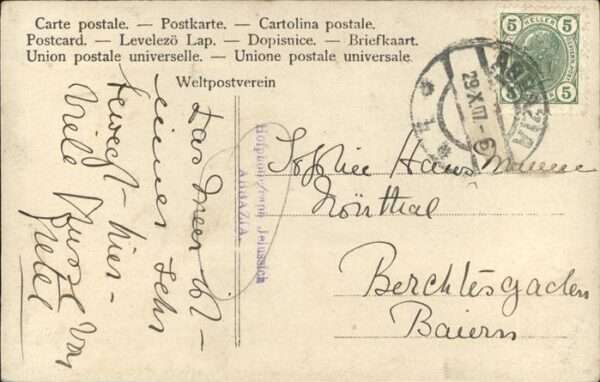 Carte postale. — Postkarte. — Cartolina postale.
Postcard. — Levelező Lap. — Dopisnice. — Briefkaart.
Union postale universelle. — Unione postale universale.
Weltpostverein
5 HELLER 5
5 5
ABBAZIA
29.X.07.-6
Hofphotograph Jelussich
ABBAZIA
Das Meer ist –
immer sehr
bewegt – hier –
Viele Küsse von
Sophie
Berchtesgaden
Baiern